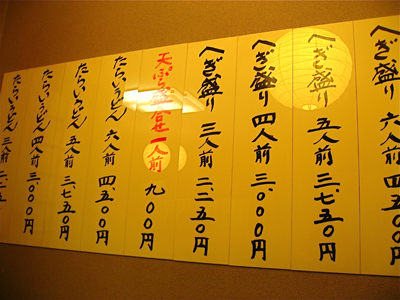 へぎ盛り 六人前 四、五
へぎ盛り 五人前 三、七五〇円
へぎ盛り 四人前 三、〇〇〇円
へぎ盛り 三人前 二、二五〇円
天ぷら盛合せ 一人前 九〇〇円
たらいうどん 六人前 四、五〇〇円
たらいうどん 五人前 三、七五〇円
たらいうどん 四人前 三、〇〇〇円
たらいうどん 三人前 二、二五